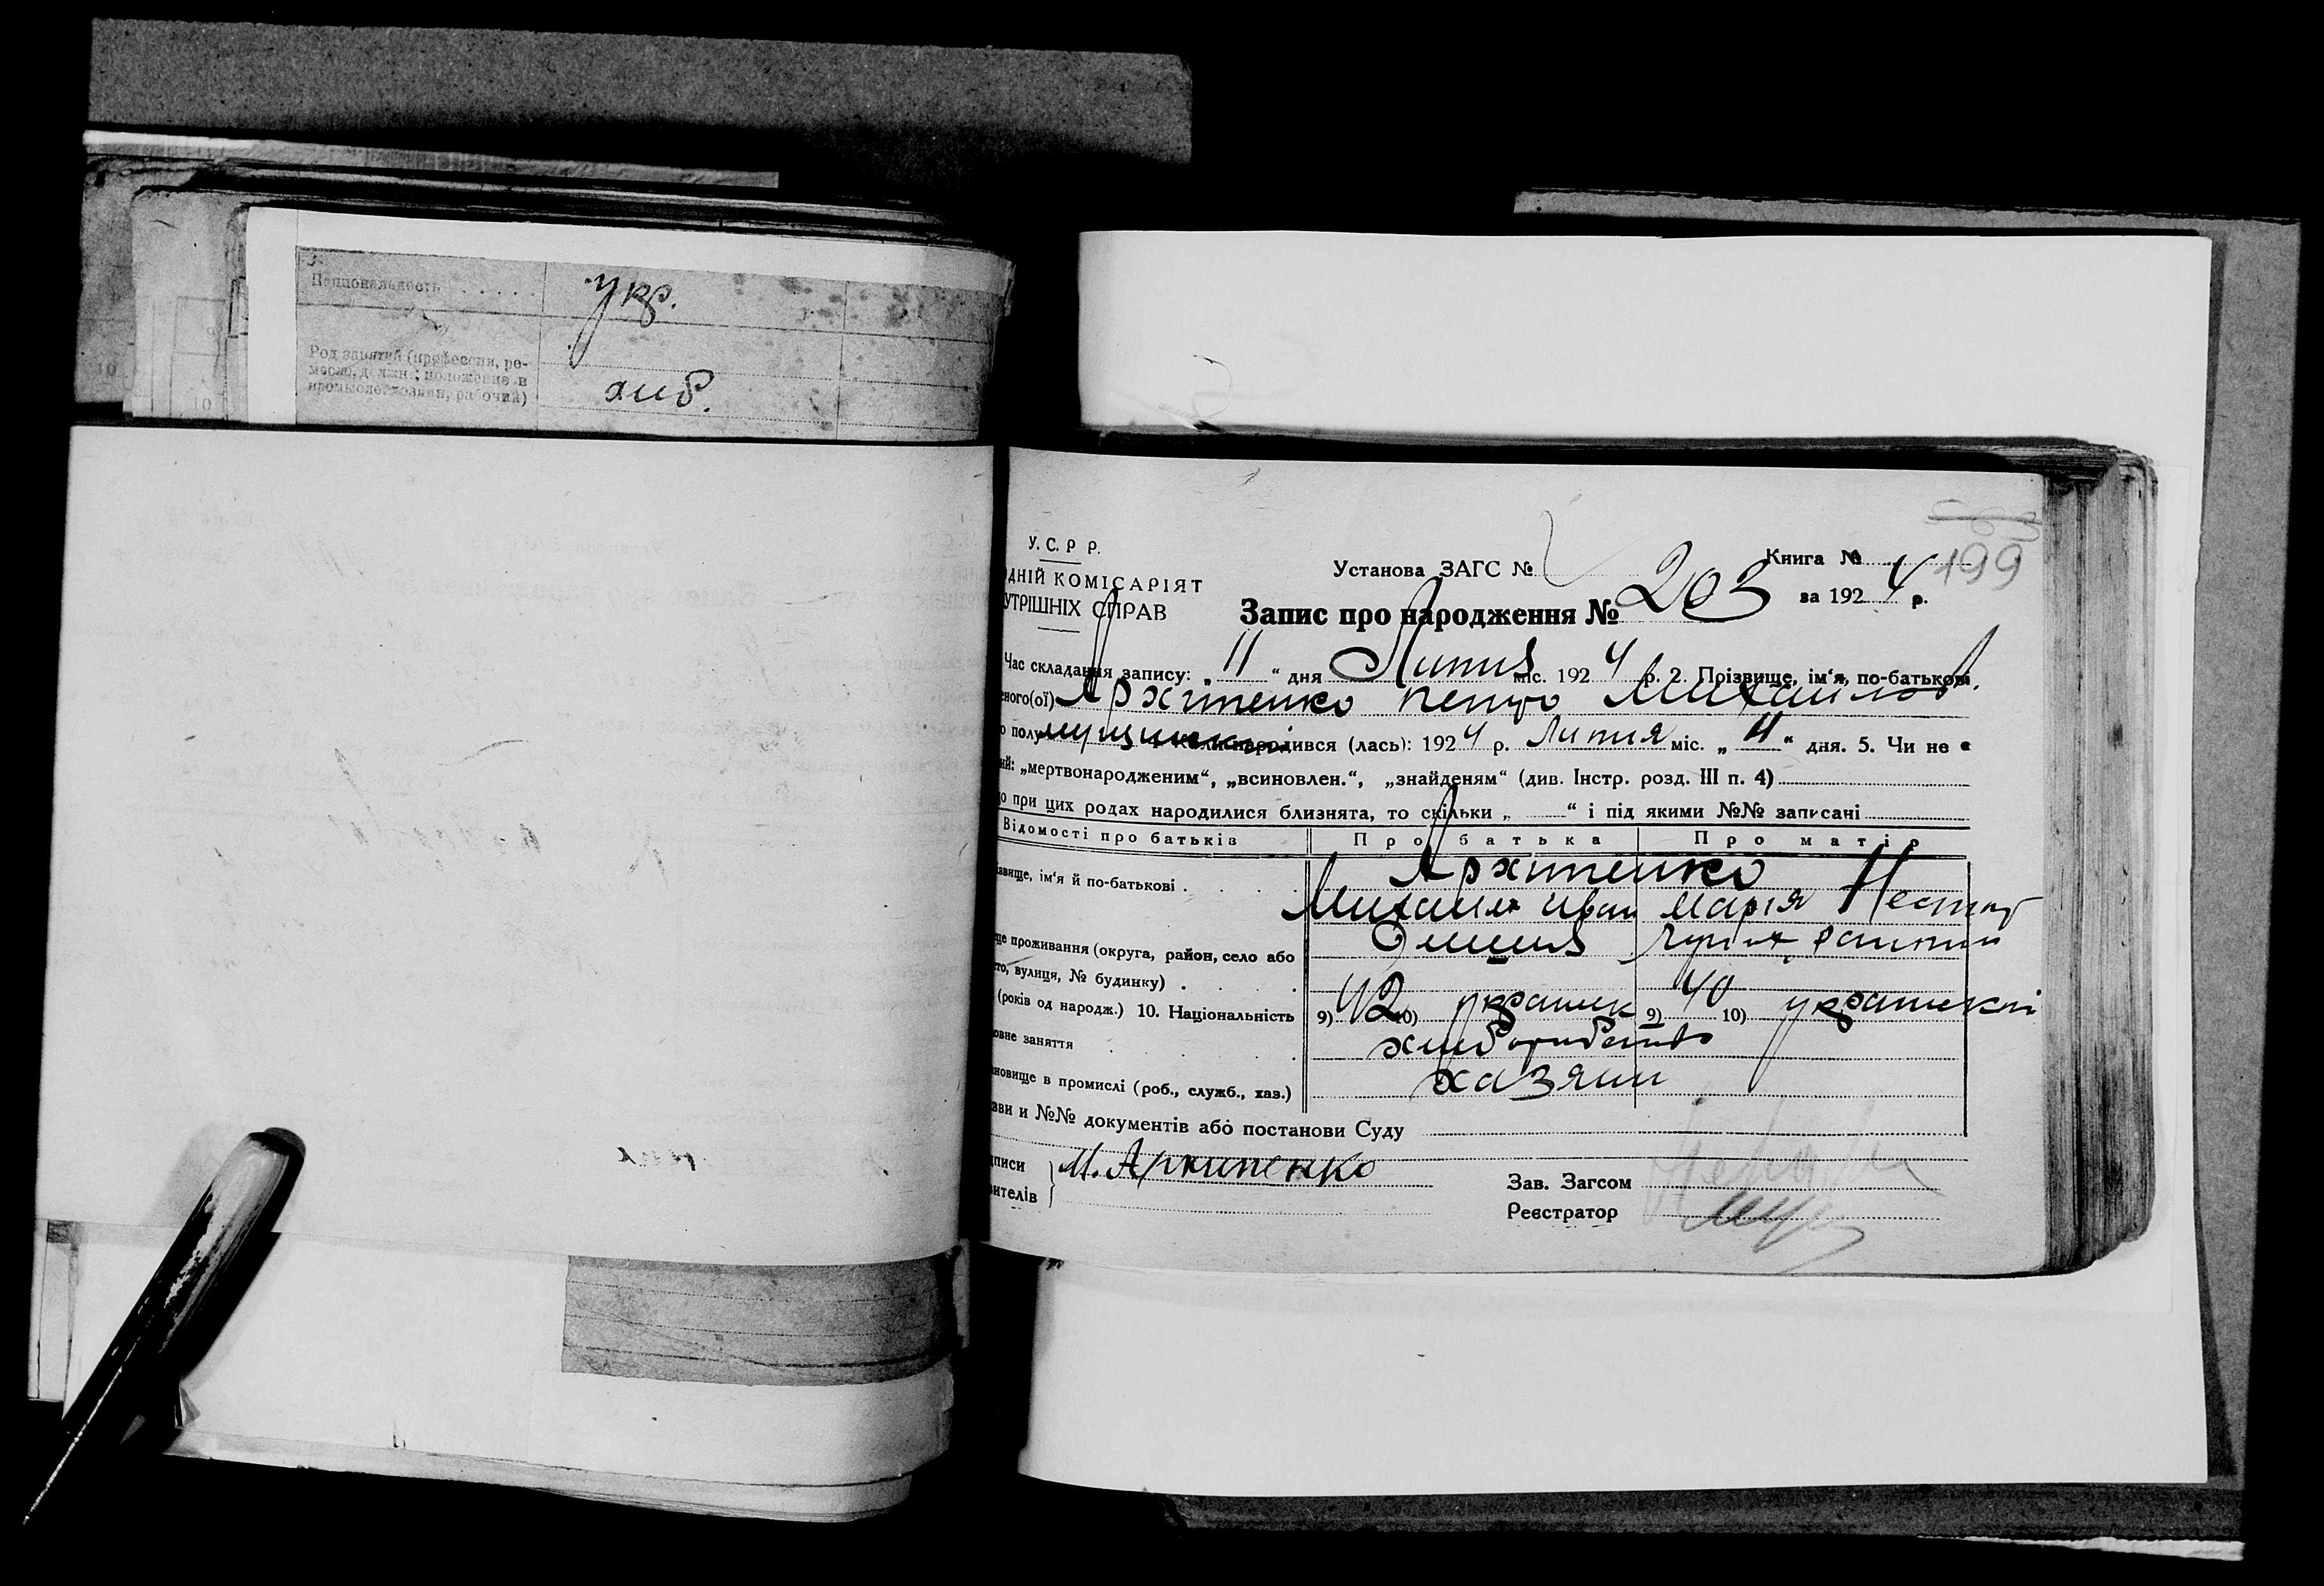 Национальность
укр.
Род занятий (профессия, ре-
месло, должн.; положение в
промысле: хозяин, рабочий)
хліб.
10
10
199
У. С. Р Р.
ОДНІЙ КОМІСАРІЯТ
УТРІШНІХ СПРАВ
Установа ЗАГС №
Книга №
Запис про народження № 203 за 1924 р.
Час складання запису: „ 11 “ дня Липня міс. 1924 р. 2. Прізвище, ім'я, по-батькові
еного(ої) Архипенко Петро Михайлов.
о полу народився (лась): 1924 р. Липня міс. „ 11 “ дня. 5. Чи не є
ий: „мертвонародженим“, „всиновлен.“, „знайденям“ (див. Інстр. розд. III п. 4)
о при цих родах народилися близнята, то скільки „ “ і під якими №№ записані
Відомості про батьків Про батька Про матір
ізвище, ім'я й по-батькові . Архипенко
Михайло Иван Марія Нестор
ще проживання (округа, район, село або
сто, вулиця, № будинку) .
(років од народж.) 10. Національність 9) 42 10) украинск 9) 40 10)
овне заняття хліборобство
ановище в промислі (роб., служб., хаз.) хазяин
зви и №№ документів або постанови Суду
дписи М. Архипенко
вителів
Зав. Загсом
Реєстратор